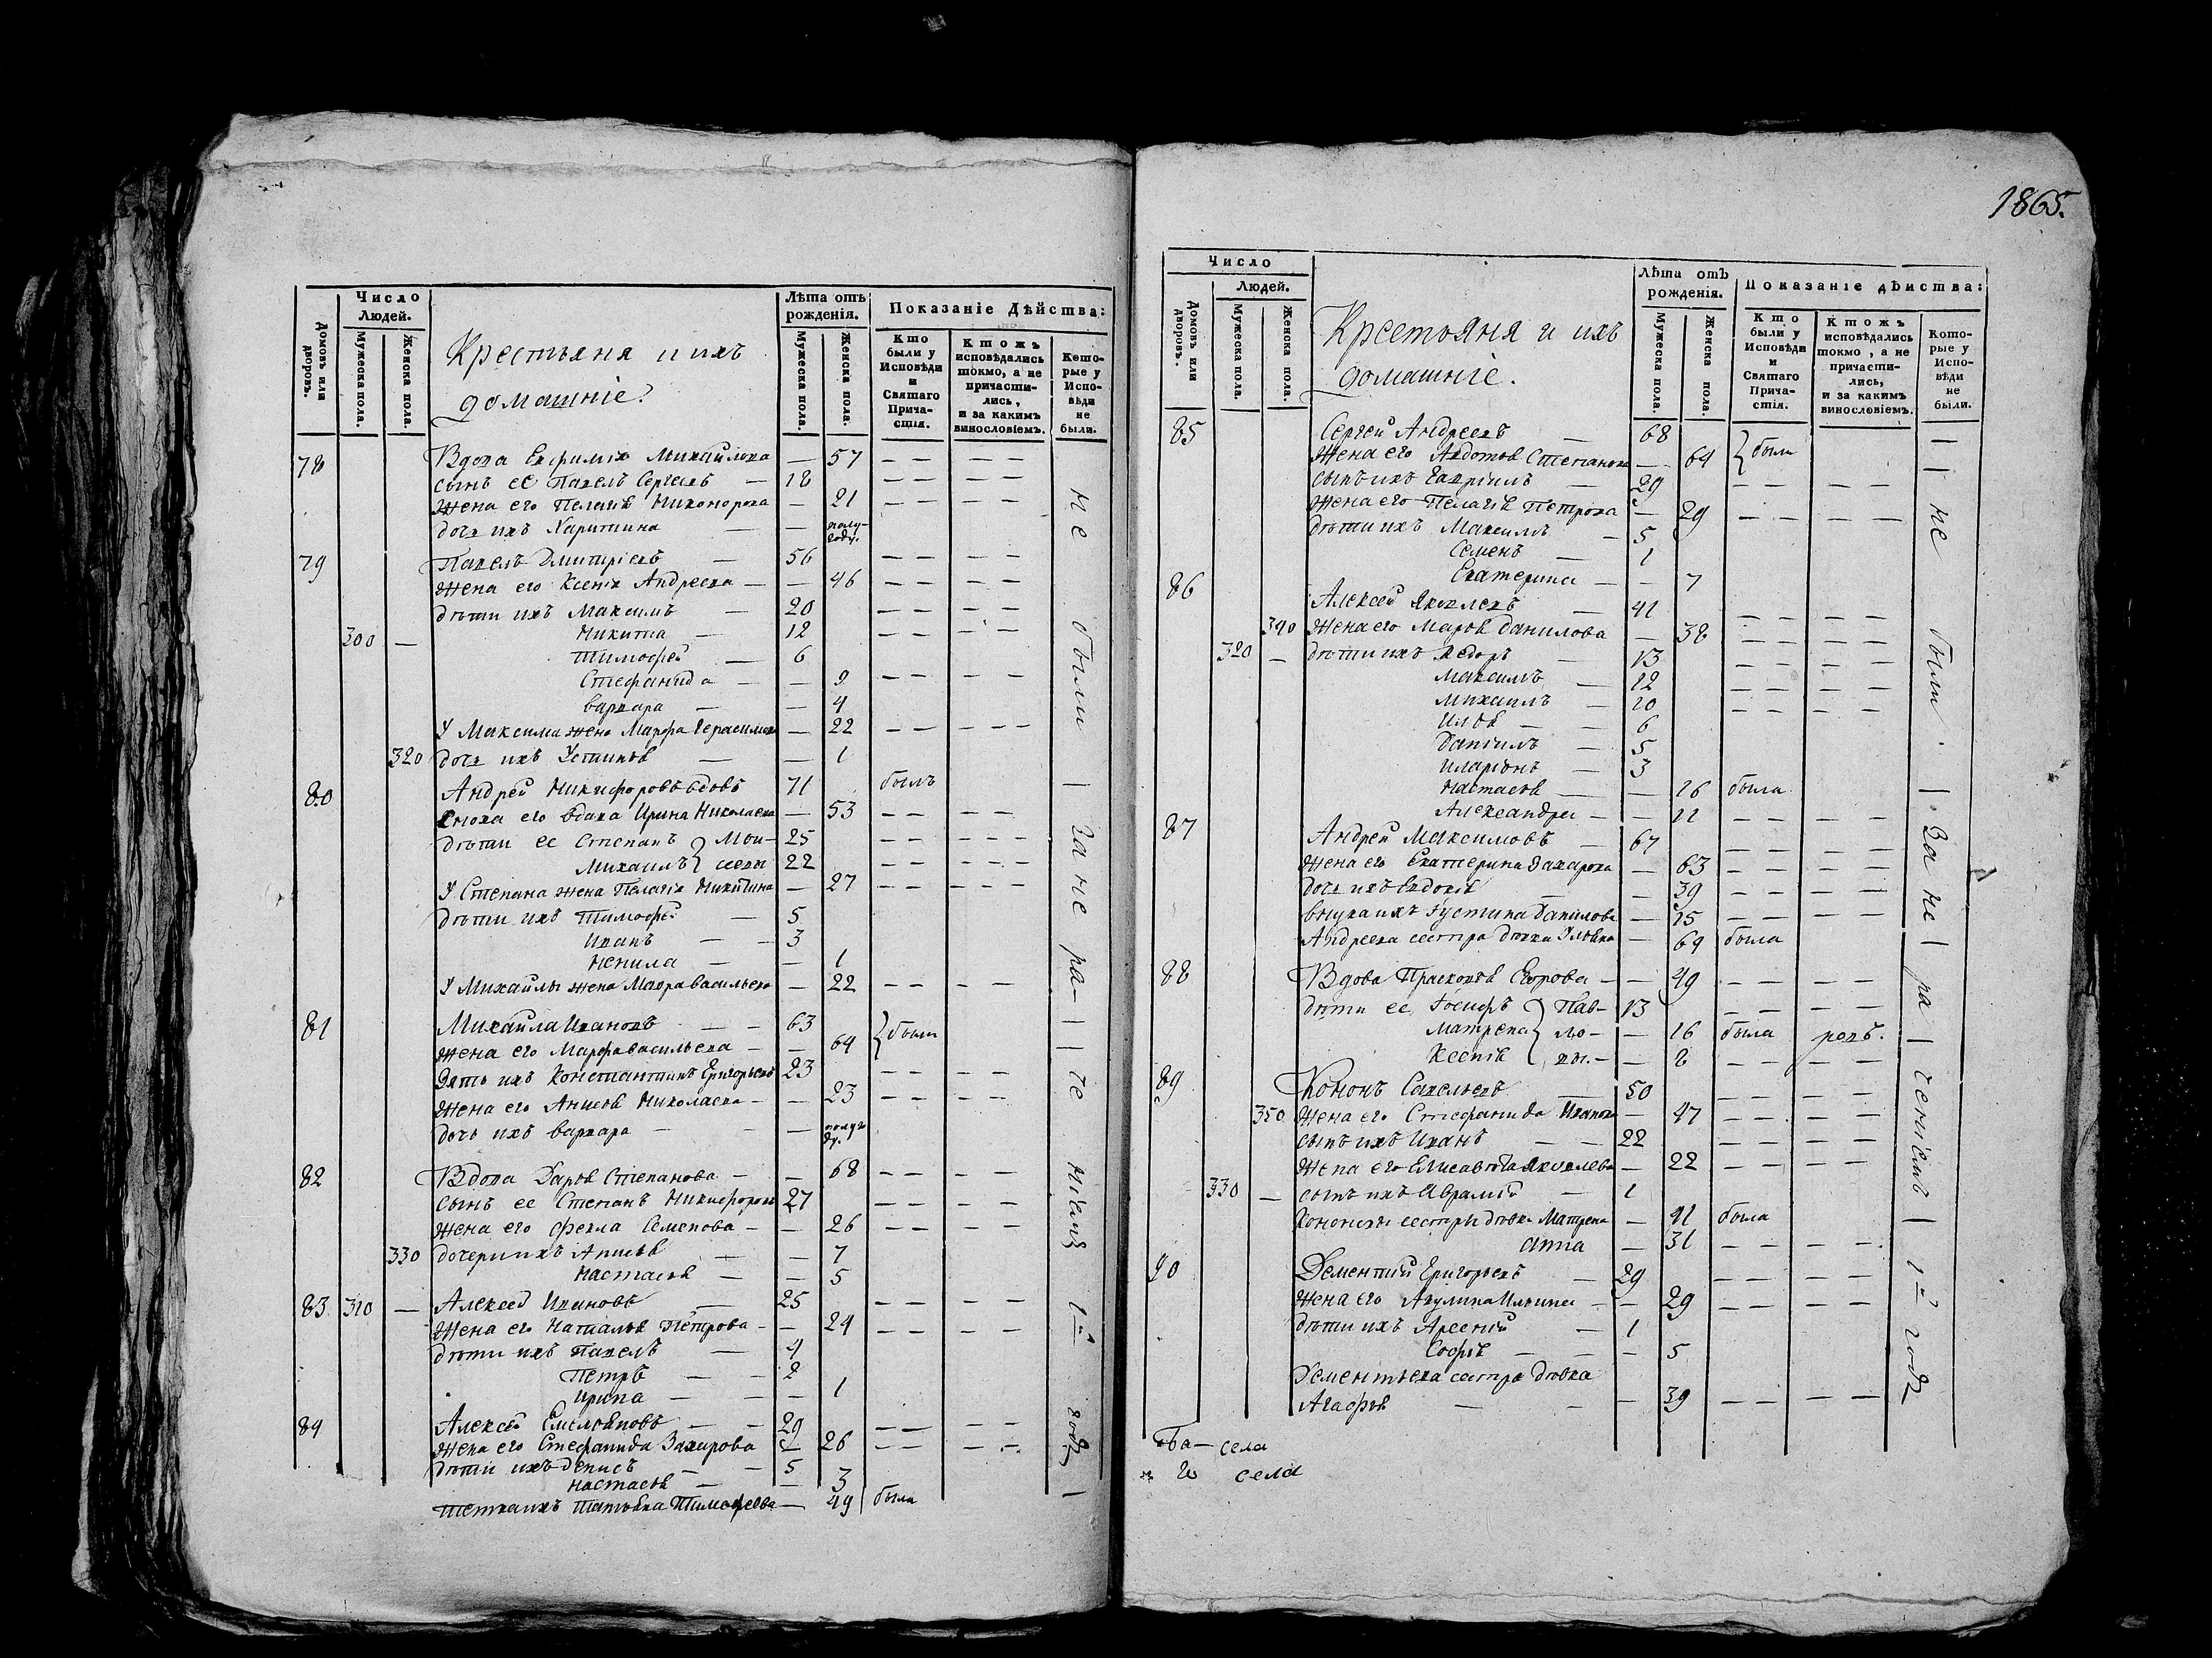 1865.
Число
Людей.
Домовъ или дворовъ.
Мужеска пола.
Женска пола.
Крестьяня и ихъ
домашніе.
Лѣта отъ
рожденія.
Мужеска пола.
Женска пола.
Показаніе Дѣйства:
Кто были у Исповѣди и Святаго Прича-стія.
Ктожъ исповѣдались токмо, а не причасти-лись, и за какимъ винословіемъ.
Кото-рые у Испо-вѣди не были.
78 Вдова Евфимія Михайлова — 57 — — — —
сынъ ее Павелъ Сергеевъ — 18 — — — —
жена его Пелагія Никонорова — 21 — — — —
дочь ихъ Харитина — — полу-году.
79 Павелъ Дмитріевъ — 56 — — — —
жена его Ксенія Андреева — — 46 — — — —
дѣти ихъ Максимъ — 20 — — — —
300 — Никита — 12 — — — —
Тимофей — 6
Стефанида — — 9 — — — —
Варвара — — 4
У Максима жена Марфа Герасимова — 22 — — — —
320 дочь ихъ Устинья — — 1
80 Андрей Никифоровъ вдовъ 71 былъ
сноха его вдова Ирина Николаева — 53 — — — —
дѣти ее Степанъ } Мои- 25 — — — —
Михаилъ } сеевы 22 — — — —
У Степана жена Пелагія Никитина — 27 — — — —
дѣти ихъ Тимофей — 5
Иванъ — — 3
Ненила — — 1
У Михайлы жена Мавра Васильева — 22 — — — —
81 Михайла Ивановъ — — 63 { были
жена его Марфа Васильева — — 64
Зять ихъ Константинъ Григорьевъ 23 — — — —
жена его Анисья Николаева — — 23 — — — —
дочь ихъ Варвара — — — полуго ду.
82 Вдова Дарья Степанова — — 68 — — — —
сынъ ее Степанъ Никифоровъ 27 — — — —
жена его Фекла Семенова — — 26 — — — —
330 дочери ихъ Анисья — — 7
Настасья — — 5
83 310 — Алексей Ивановъ — 25 — — — —
жена его Наталья Петрова — — 24 — — — —
дѣти ихъ Павелъ — 4
Петръ — — 2
Ирина — — — 1
84 Алексей Емельяновъ — — 29 — — — —
жена его Стефанида Захарова — 26 — — — —
дѣти ихъ Денисъ — — 5
Настасья — — 3
тетка ихъ Татьяна Тимофеева — 49 была
не были за не ра- че ніемъ 1й годъ
Число
Людей.
Домовъ или дворовъ.
Мужеска пола.
Женска пола.
Крестьяня и ихъ
домашніе.
Лѣта отъ
рожденія.
Мужеска пола.
Женска пола.
Показаніе дѣиства:
Кто были у Исповѣди и Святаго Прича-стія.
Ктожъ исповѣдались токмо, а не причасти-лись, и за какимъ винословіемъ.
Кото-рые у Испо-вѣди не были.
85 Сергей Андреевъ — 68 { были
жена его Авдотья Степанова — 64
сынъ ихъ Гавріилъ — 29 — — — —
жена его Пелагія Петрова — 29 — — — —
дѣти ихъ Максимъ — 5
Семенъ — 1
Екатерина — — 7
86 Алексей Яковлевъ — 41 — — — —
340 жена его Марья Данилова — 38 — — — —
320 — дѣти ихъ Ѳедоръ — 13 — — — —
Максимъ — 12 — — — —
Михаилъ — 10 — — — —
Илья — — 6
Даніилъ — 5
Иларіонъ — 3
Настасья — — 16 была
Александра — — 11 — — — —
87 Андрей Максимовъ — 67 — — — —
жена его Екатерина Захарова — 63 — — — —
дочь ихъ Евдокія — — 39 — — — —
внука ихъ Іустина Данилова — 15 — — — —
Андреева сестра дѣвка Ульяна — 64 была
88 Вдова Прасковья Егорова — — 49 — — — —
дѣти ее Іосифъ } Пав- 13 — — — —
Матрена } ло- — 16 была
Ксенія } вы. — — 8 — — —
89 Кононъ Савельевъ — 50 — — — —
350 жена его Стефанида Иванова — 47 — — — —
сынъ ихъ Иванъ — — 22 — — — —
жена его Елисавета Яковлева — 22 — — — —
330 — сынъ ихъ Аврамій — 1
Кононовы сестры дѣвки Матрена — 41 была
Анна — 31 — — — —
90 Дементій Григорьевъ — 29 — — — —
жена его Акулина Ильина — — 29 — — — —
дѣти ихъ Арсеній — 1
Софія — — — 5
Дементьева сестра дѣвка
Агафья — — — 39 — — — —
не были за не ра ченіемъ 1й годъ
села
села